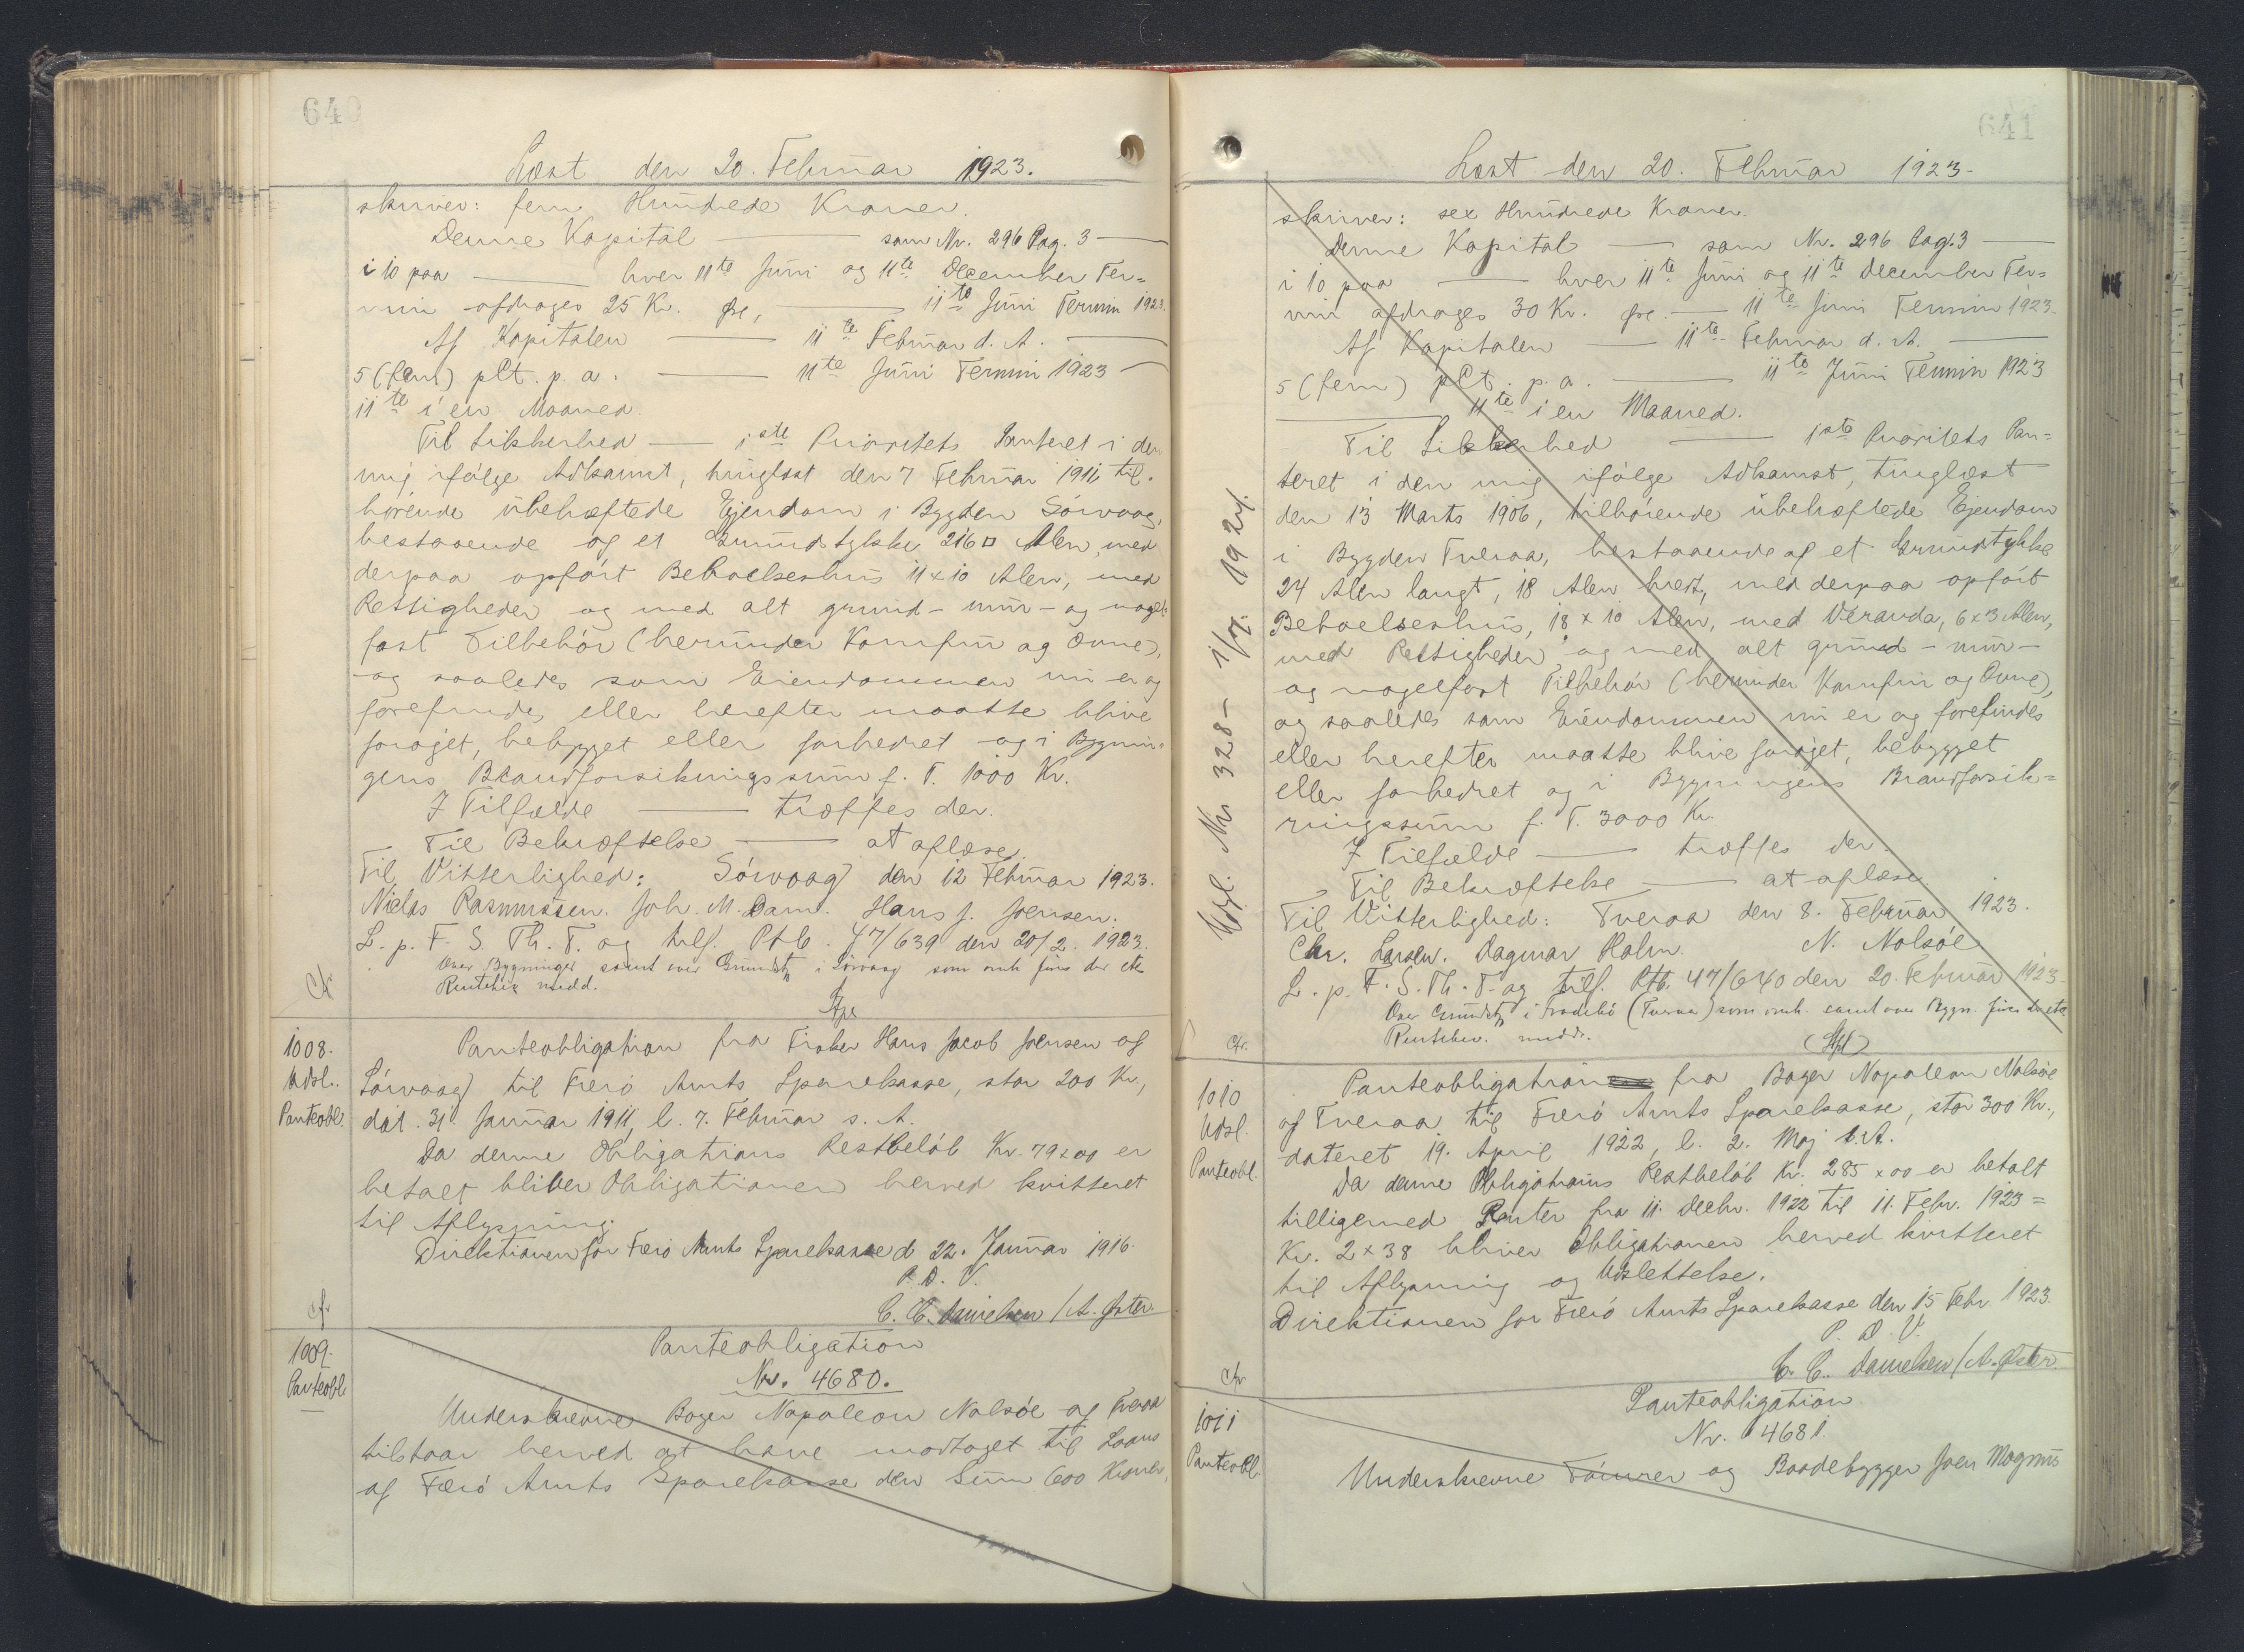 640
Læst den 20. Februar 1923.
skriver: fem Hundrede Kroner.
Denne Kapital — som Nr. 296 Pag. 3 —
i 10 paa — hver 11te Juni og 11te December Ter-
min afdrages 25 Kr. Øre, — 11te Juni Termin 1923.
Af Kapitalen — 11te Februar d. A. —
5 (fem) pCt. p. a. — 11te Juni Termin 1923 —
11te i en Maaned.
Til Sikkerhed — 1ste Prioritets Panteret i den
mig ifølge Adkomst, tinglæst den 7 Februar 1911 til-
hørende übehæftede Ejendom i Bygden Sörvaag,
bestaaende af et Grundstykke 216 □ Alen, med
derpaa opført Beboelseshus 11 x 10 Alen, med
Rettigheder og med alt grund- mur- og nagel-
fast Tilbehör (herunder Komfur og Ovne),
og saaledes som Eiendommen nu er og
forefindes eller herefter maatte blive
forøjet, bebygget eller forbedret og i Bygnin-
gens Brandforsikringssum f. T. 1000 Kr.
I Tilfælde — træffes der.
Til Bekræftelse — at aflæse.
Til Vitterlighed: Sörvaag den 12 Februar 1923.
Niels Rasmussen. Joh. M. Dam. Hans J. Joensen.
L. p. F. S. Th. T. og tilf. Ptb. 47/639 den 20/2. 1923.
Over Bygninger samt over Grundst. i Sörvaag som omh. fins der ikke
Rentebev. medd.
Cfr.
1008.
Udsl.
Panteobl.
Panteobligation fra Fisker Hans Jacob Joensen af
Sörvaag til Færö Amts Sparekasse, stor 200 Kr.,
dat. 31 Januar 1911, l. 7. Februar s. A.
Da denne Obligations Restbelöb Kr. 79 x 00 er
betalt bliver Obligationen herved kvitteret
til Aflysning.
Direktionen for Færö Amts Sparekasse d. 22. Januar 1916.
P. D. V.
C. C. Danielsen / A. Öster.
cfr
1009.
Panteobl.
Panteobligation
Nr. 4680.
Underskrevne Bager Napoleon Nolsöe af Tveraa
tilstaar herved at have modtaget til Laans
af Færö Amts Sparekasse den Sum 600 Kroner,
641
Læst den 20. Februar 1923.
skriver: sex Hundrede Kroner.
Denne Kapital — som Nr. 296 Pag. 3 —
i 10 paa — hver 11te Juni og 11te December Ter-
min afdrages 30 Kr. Øre — 11te Juni Termin 1923.
Af Kapitalen — 11te Februar d. A. —
5 (fem) pCt. p. a. — 11te Juni Termin 1923
— 11te i en Maaned.
Til Sikkerhed — 1ste Prioritets Pan-
teret i den mig ifølge Adkomst, tinglæst
den 13 Marts 1906, tilhörende übehæftede Ejendom
i Bygden Tveraa, bestaaende af et Grundstykke
24 Alen langt, 18 Alen bredt, med derpaa opfört
Beboelseshus, 18 x 10 Alen, med Veranda, 6 x 3 Alen,
med Rettigheder og med alt grund- mur-
og nagelfast Tilbehör (herunder Komfur og Ovne),
og saaledes som Eiendommen nu er og forefindes
eller herefter maatte blive forøjet, bebygget
eller forbedret og i Bygningens Brandforsik-
ringssum f. T. 3000 Kr.
I Tilfælde — træffes der.
Til Bekræftelse — at aflæse
Til Vitterlighed: Tveraa den 8. Februar 1923.
Chr. Larsen. Dagmar Holm. N. Nolsöe
L. p. F. S. Th. T. og tilf. Ptb. 47/640 den 20. Februar 1923
Over Grundst. i Frodebö (Tveraa) som omh. samt over Bygn. fins der ikke
Rentebev. medd.
Udsl. Nr 328 – 1/7. 1924.
Cfr.
1010
Udsl.
Panteobl.
Panteobligation fra Bager Napoleon Nolsöe
af Tveraa til Færö Amts Sparekasse, stor 300 Kr.,
dateret 19. April 1922, l. 2. Maj s. A.
Da denne Obligations Restbelöb Kr. 285 x 00 er betalt
tilligemed Renter fra 11. Decbr. 1922 til 11. Febr. 1923 =
Kr. 2 x 38 bliver Obligationen herved kvitteret
til Aflysning og Udslettelse.
Direktionen for Færö Amts Sparekasse den 15 Febr 1923.
P. D. V.
C. C. Danielsen / A. Öster.
cfr
1011
Panteobl.
Panteobligation
Nr. 4681.
Underskrevne Tömrer og Baadebygger Joen Magnus